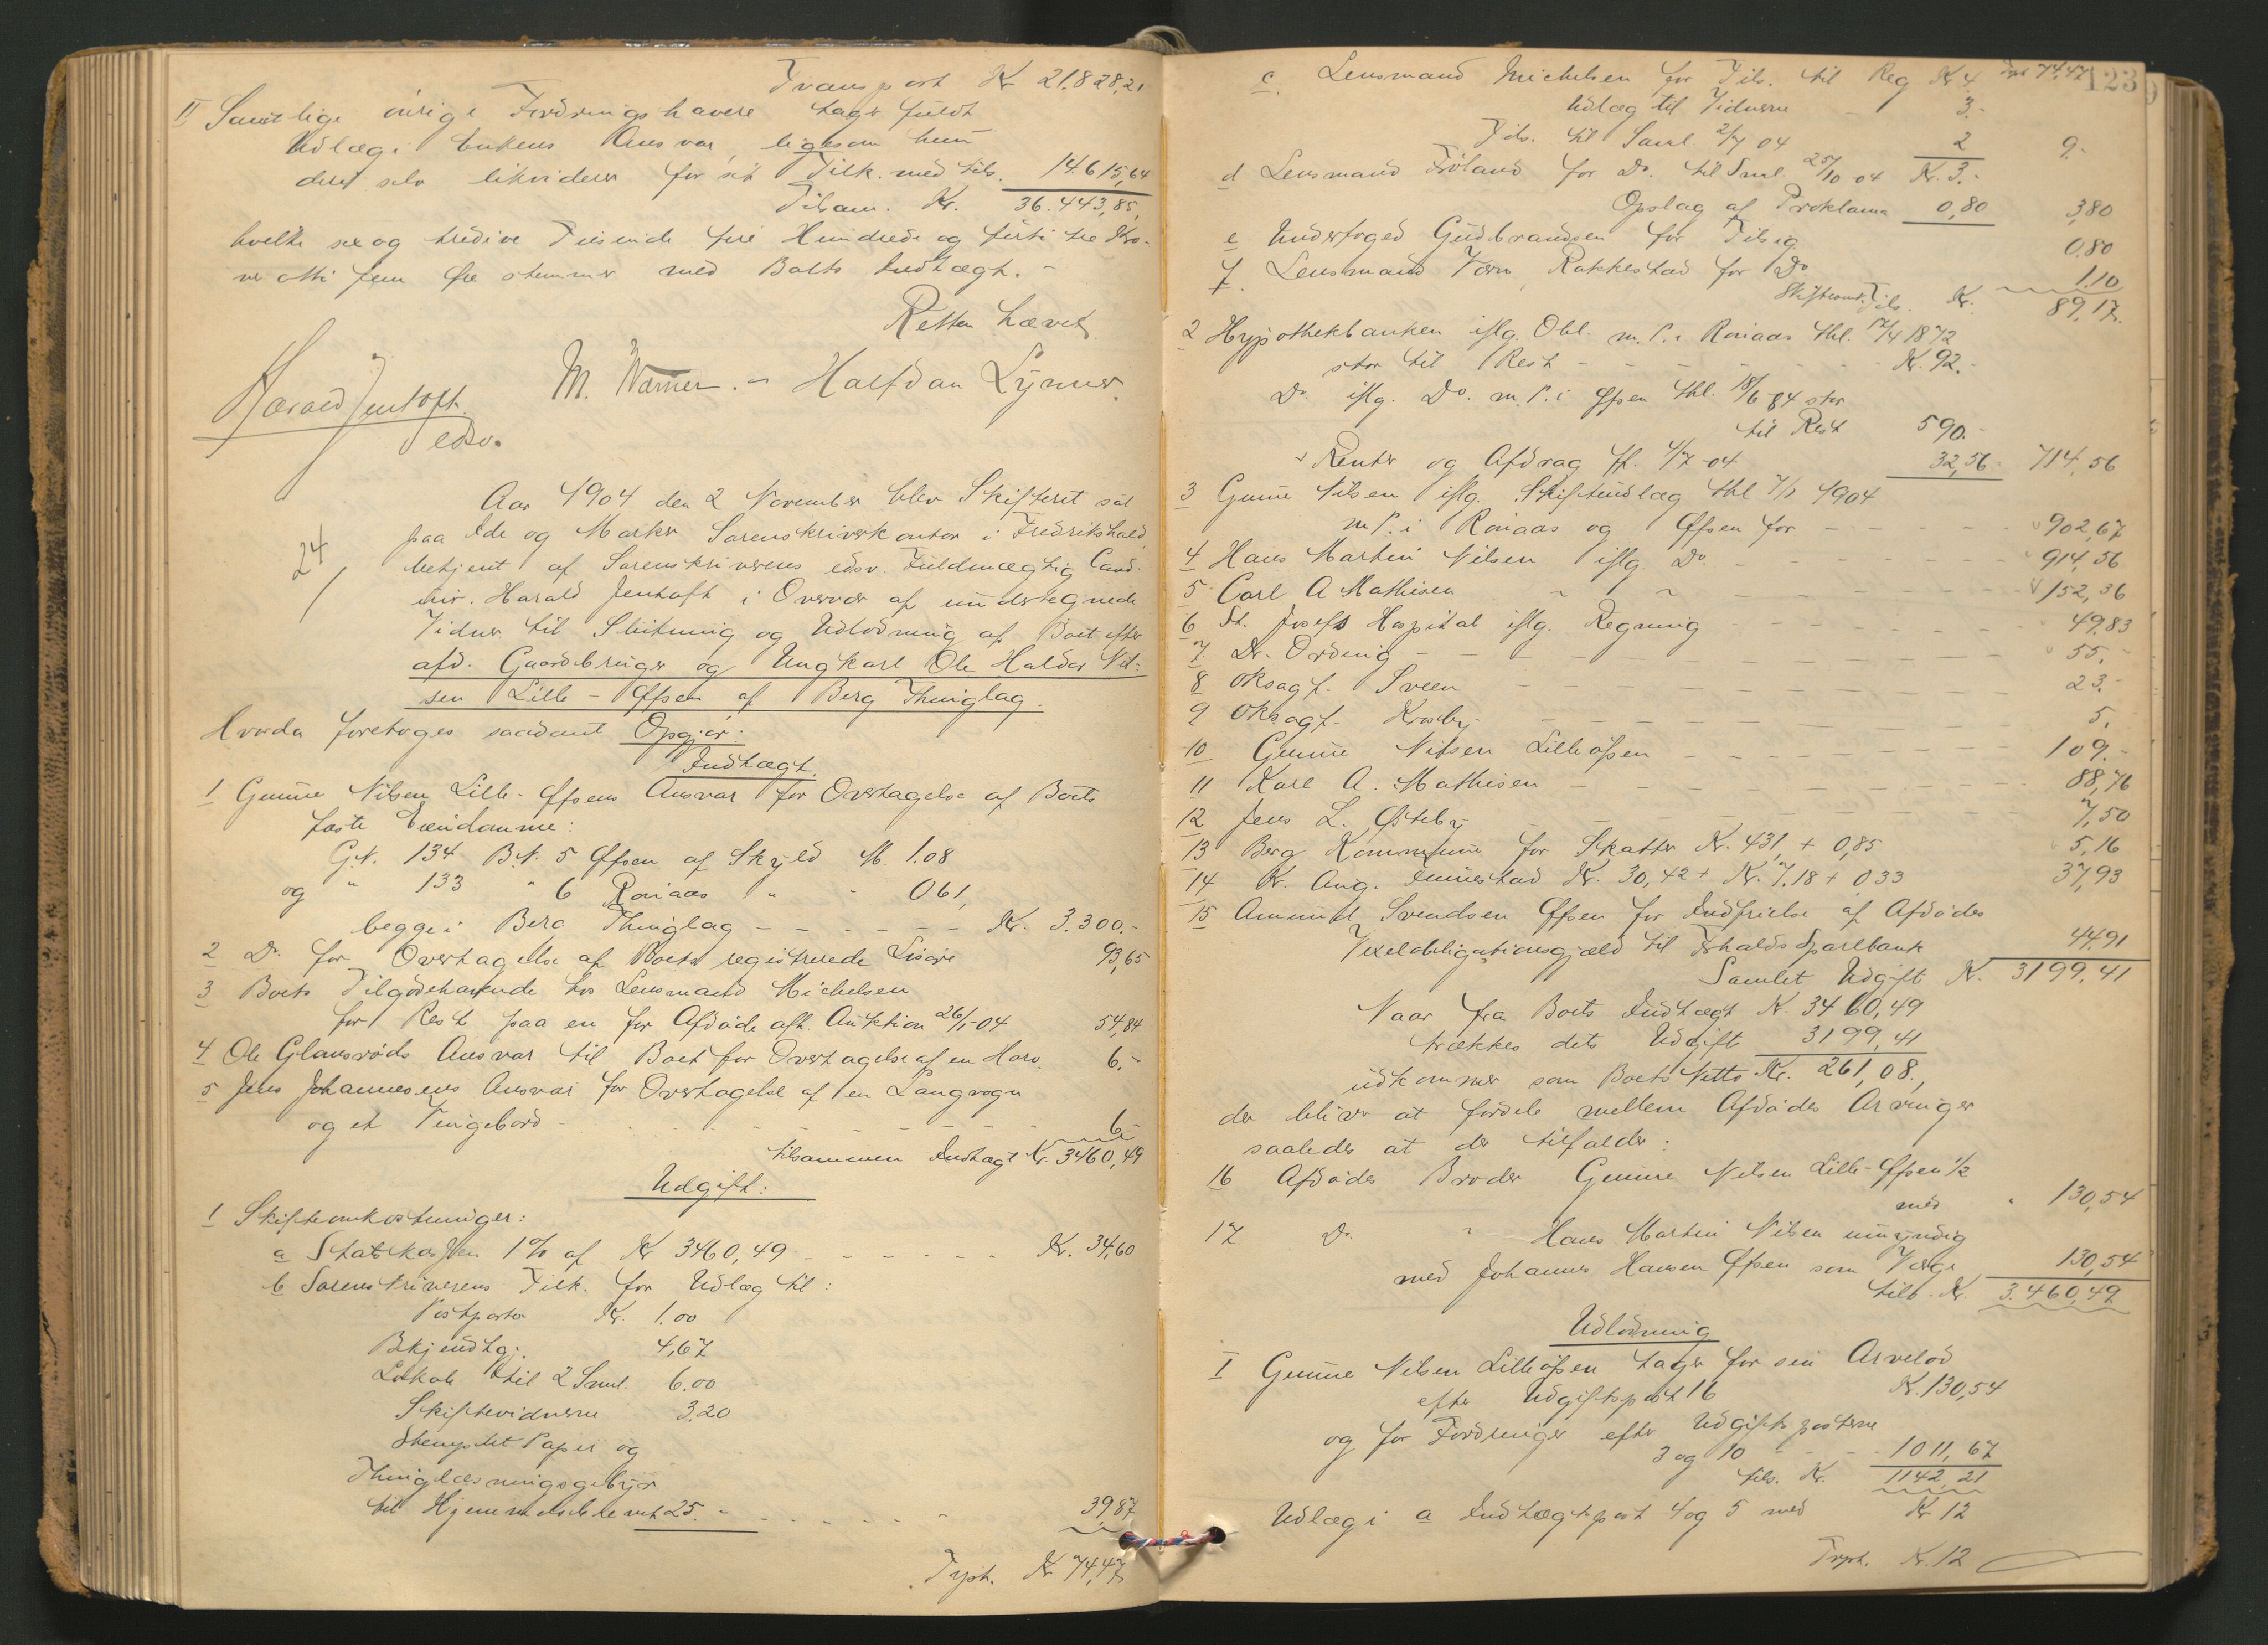 Transport Kr 21.828,21
II Samtlige øvrige Fordringshavere tager fuldt
Udlæg i Enkens Ansvar, ligesom hun
deri selv likviderer for sit Tilk. med tils. 14.615,64
Tilsam. Kr. 36.443,85,
hvilke sex og tredive Tusende fire Hundrede og firti tre Kro-
ner otti fem Øre stemmer med Boets Indtægt. -
Retten hævet
M. Warner. - Halfdan Lynner.
Harald Jentoft
edsv.
24
Aar 1904 den 2 November blev Skifteret sat
paa Idde og Marker Sorenskriverkontor i Fredrikshald,
betjent af Sorenskriverens edsv Fuldmægtig Cand.
jur. Harald Jentoft i Overvær af undertegnede
Vidner til Slutning og Udlodning af Boet efter
afd. Gaardbruger og Ungkarl Ole Haldor Nil-
sen Lille-Øfsen af Berg Thinglag.
Hvorda foretoges saadant Opgjør:
Indtægt.
1 Gunne Nilsen Lille-Øfsens Ansvar for Overtagelse af Boets
faste Eiendomme:
G.N. 134 B.N. 5 Øfsen af Skyld M. 1.08
og " 133 " 6 Roniaas " - 0 61,
begge i Berg Thinglag - - - - - - Kr. 3.300.-
2 Do for Overtagelse af Boets registrerede Løsøre 93,65
3 Boets Tilgodehavende hos Lensmand Michelsen
for Rest paa en for Afdøde afh. Auktion 26/1-04 54,84
4 Ole Glansrøds Ansvar til Boet for Overtagelse af en Harv. 6,-
5 Jens Johannesens Ansvar for Overtagelse af en Langvogn
og et Vingebord - - - - - - - - 6-
tilsammen Indtægt Kr. 3460,49
Udgift:
1 Skifteomkostninger:
a Statskassen 1% af Kr 3460,49 - - - - - - Kr. 34,60
b Sorenskriverens Tilk. for Udlæg til:
Postporto Kr. 1.00
Bekjendtgj. 4,67
Lokale til 2 Saml. 6.00
Skiftevidnerne 3.20
Stemplet Papir og
Thinglæsningsgebyr
til Hjemmelsdokument 25. - - - - - - 39,87
Trpt. Kr 74,47
123
c. Lensmand Michelsen for Tils. til Reg Kr 4 Trpt 74.47
Udlæg til Vidnerne - 3.-
Tils. til Saml. 2/7 04 2 9.-
d Lensmand Fröland for Do. til Saml. 25/10 04 Kr. 3.-
Opslag af Proklama 0,80 3,80
e Underfoged Gudbrandsen for Tilsig 0.80
f. Lensmand Værn, Rakkestad for Do 1.10
Skifteomk. Tils. Kr. 89,17.
2 Hypothekbanken iflg. Obl. m. P. i Roniaas thl. 17/4 1872
stor til Rest - - - - - - - Kr. 92.-
Do iflg. Do. m. P. i Øfsen thl. 18/6 84 stor
til Rest 590.-
Renter og Afdrag pr. 4/7-04 32,56 714,56
3 Gunne Nilsen iflg. Skifteudlæg thl 7/1 1904
m P. i Roniaas og Øfsen for - - - - - - 902,67
4 Hans Martin Nilsen iflg Do - - - - - - 914,56
5 Carl A Mathisen " " - - - - - - 152,36
6 St. Josefs Hospital iflg. Regning - - - - - - 49,83
7 Dr. Ording - - - - - - 55.-
8 Oksagf. Sveen - - - - - - 23.-
9 Oksagf. Krosby - - - - - - 5.
10 Gunne Nilsen Lilleøfsen - - - - - - 109.-
11 Karl A. Mathisen - - - - - - 88,76
12 Jens L. Østeby - - - - - - 7,50
13 Berg Kommune for Skatter Kr. 431, + 0,85 5,16
14 Kr. Aug. Tunestad Kr. 30,42 + Kr. 7.18 + 0 33 37,93
15 Amund Svendsen Øfsen for Indfrielse af Afdødes
Vexelobligationsgjæld til Fhalds Sparebank 44.91
Samlet Udgift K. 3199,41
Naar fra Boets Indtægt K. 3460,49
trækkes dets Udgift 3199,41
udkommer som Boets Netto Kr. 261,08.,
der bliver at fordele mellem Afdødes Arvinger
saaledes at der tilfalder:
16 Afdødes Broder Gunne Nilsen Lille-Øfsen 1/2
med " 130,54
17 Do " Hans Martin Nilsen umyndig
med Johannes Hansen Øfsen som Værge 130,54
tils. Kr. 3.460,49
Udlodning
I Gunne Nilsen Lilleøfsen tager for sin Arvelod
efter Udgiftspost 16 Kr. 130,54
og for Fordringer efter Udgiftsposterne
3 og 10 - - - - 1011,67
tils. Kr. 1142,21
Udlæg i a Indtægtspost 4 og 5 med Kr 12
Trpt. Kr. 12